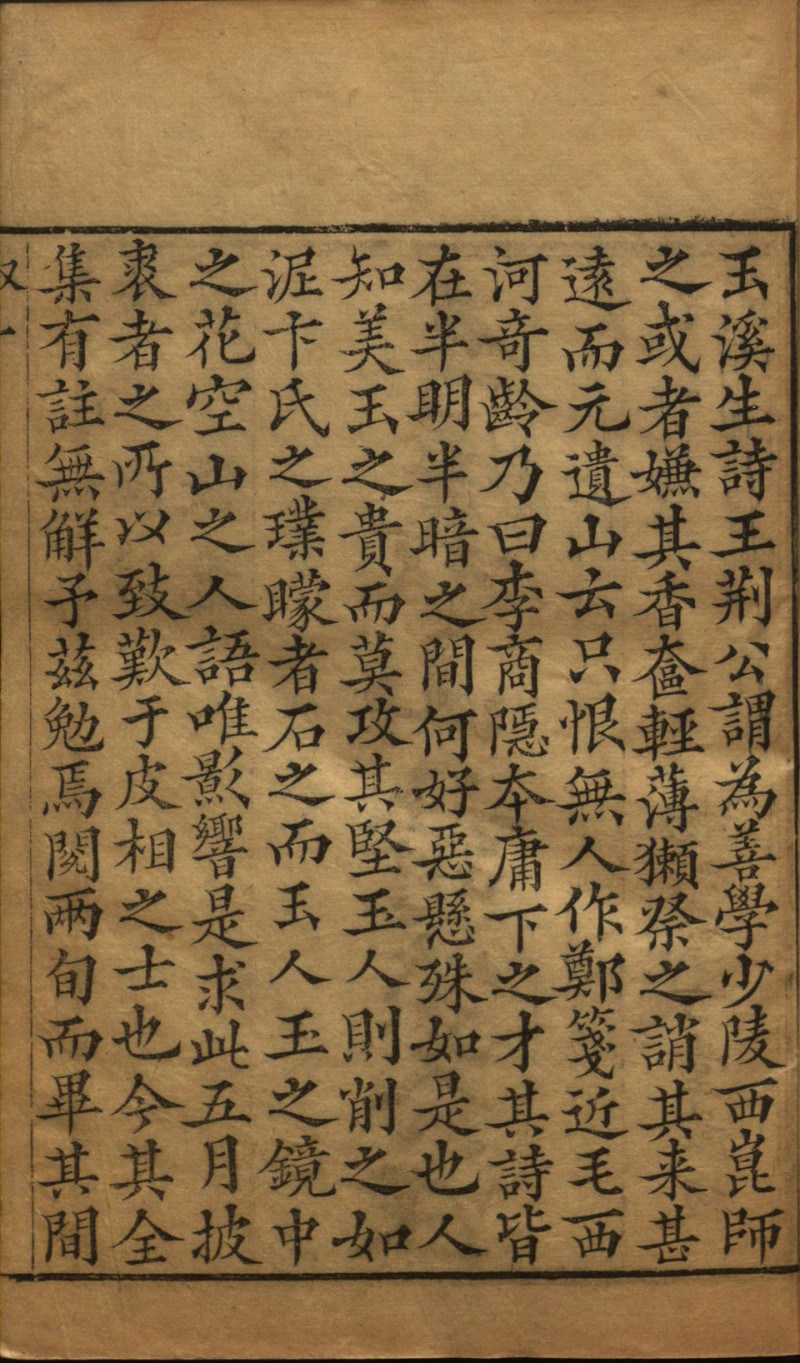 玉溪生詩王荆公謂為善學少陵西崑師
之或者嫌其香奩輕薄獺祭之誚其来甚
遠而元遺山云只恨無人作鄭箋近毛西
河竒齡乃曰李商隱本庸下之才其詩皆
在半明半暗之間何好惡懸殊如是也人
知美玉之貴而莫攻其堅玉人則削之如
泥卞氏之璞矇者石之而玉人玉之鏡中
之花空山之人語唯影響是求此五月披
裘者之所以致歎于皮相之士也今其全
集有註無解予茲勉焉閱兩旬而畢其間